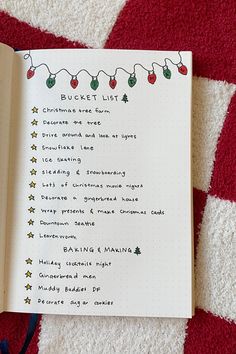 BUCKET LIST
Christmas tree farm
Decorate the tree
Drive around and look at lights
Snowflake lane
Ice Skating
Sledding & snowboarding
Lots of Christmas movie nights
Decorate a gingerbread house
Wrap presents & make Christmas cards
Downtown Seattle
Leavenworth
BAKING & MAKING
Holiday cocktails night
Gingerbread men
Muddy Buddies DF
Decorate sugar cookies